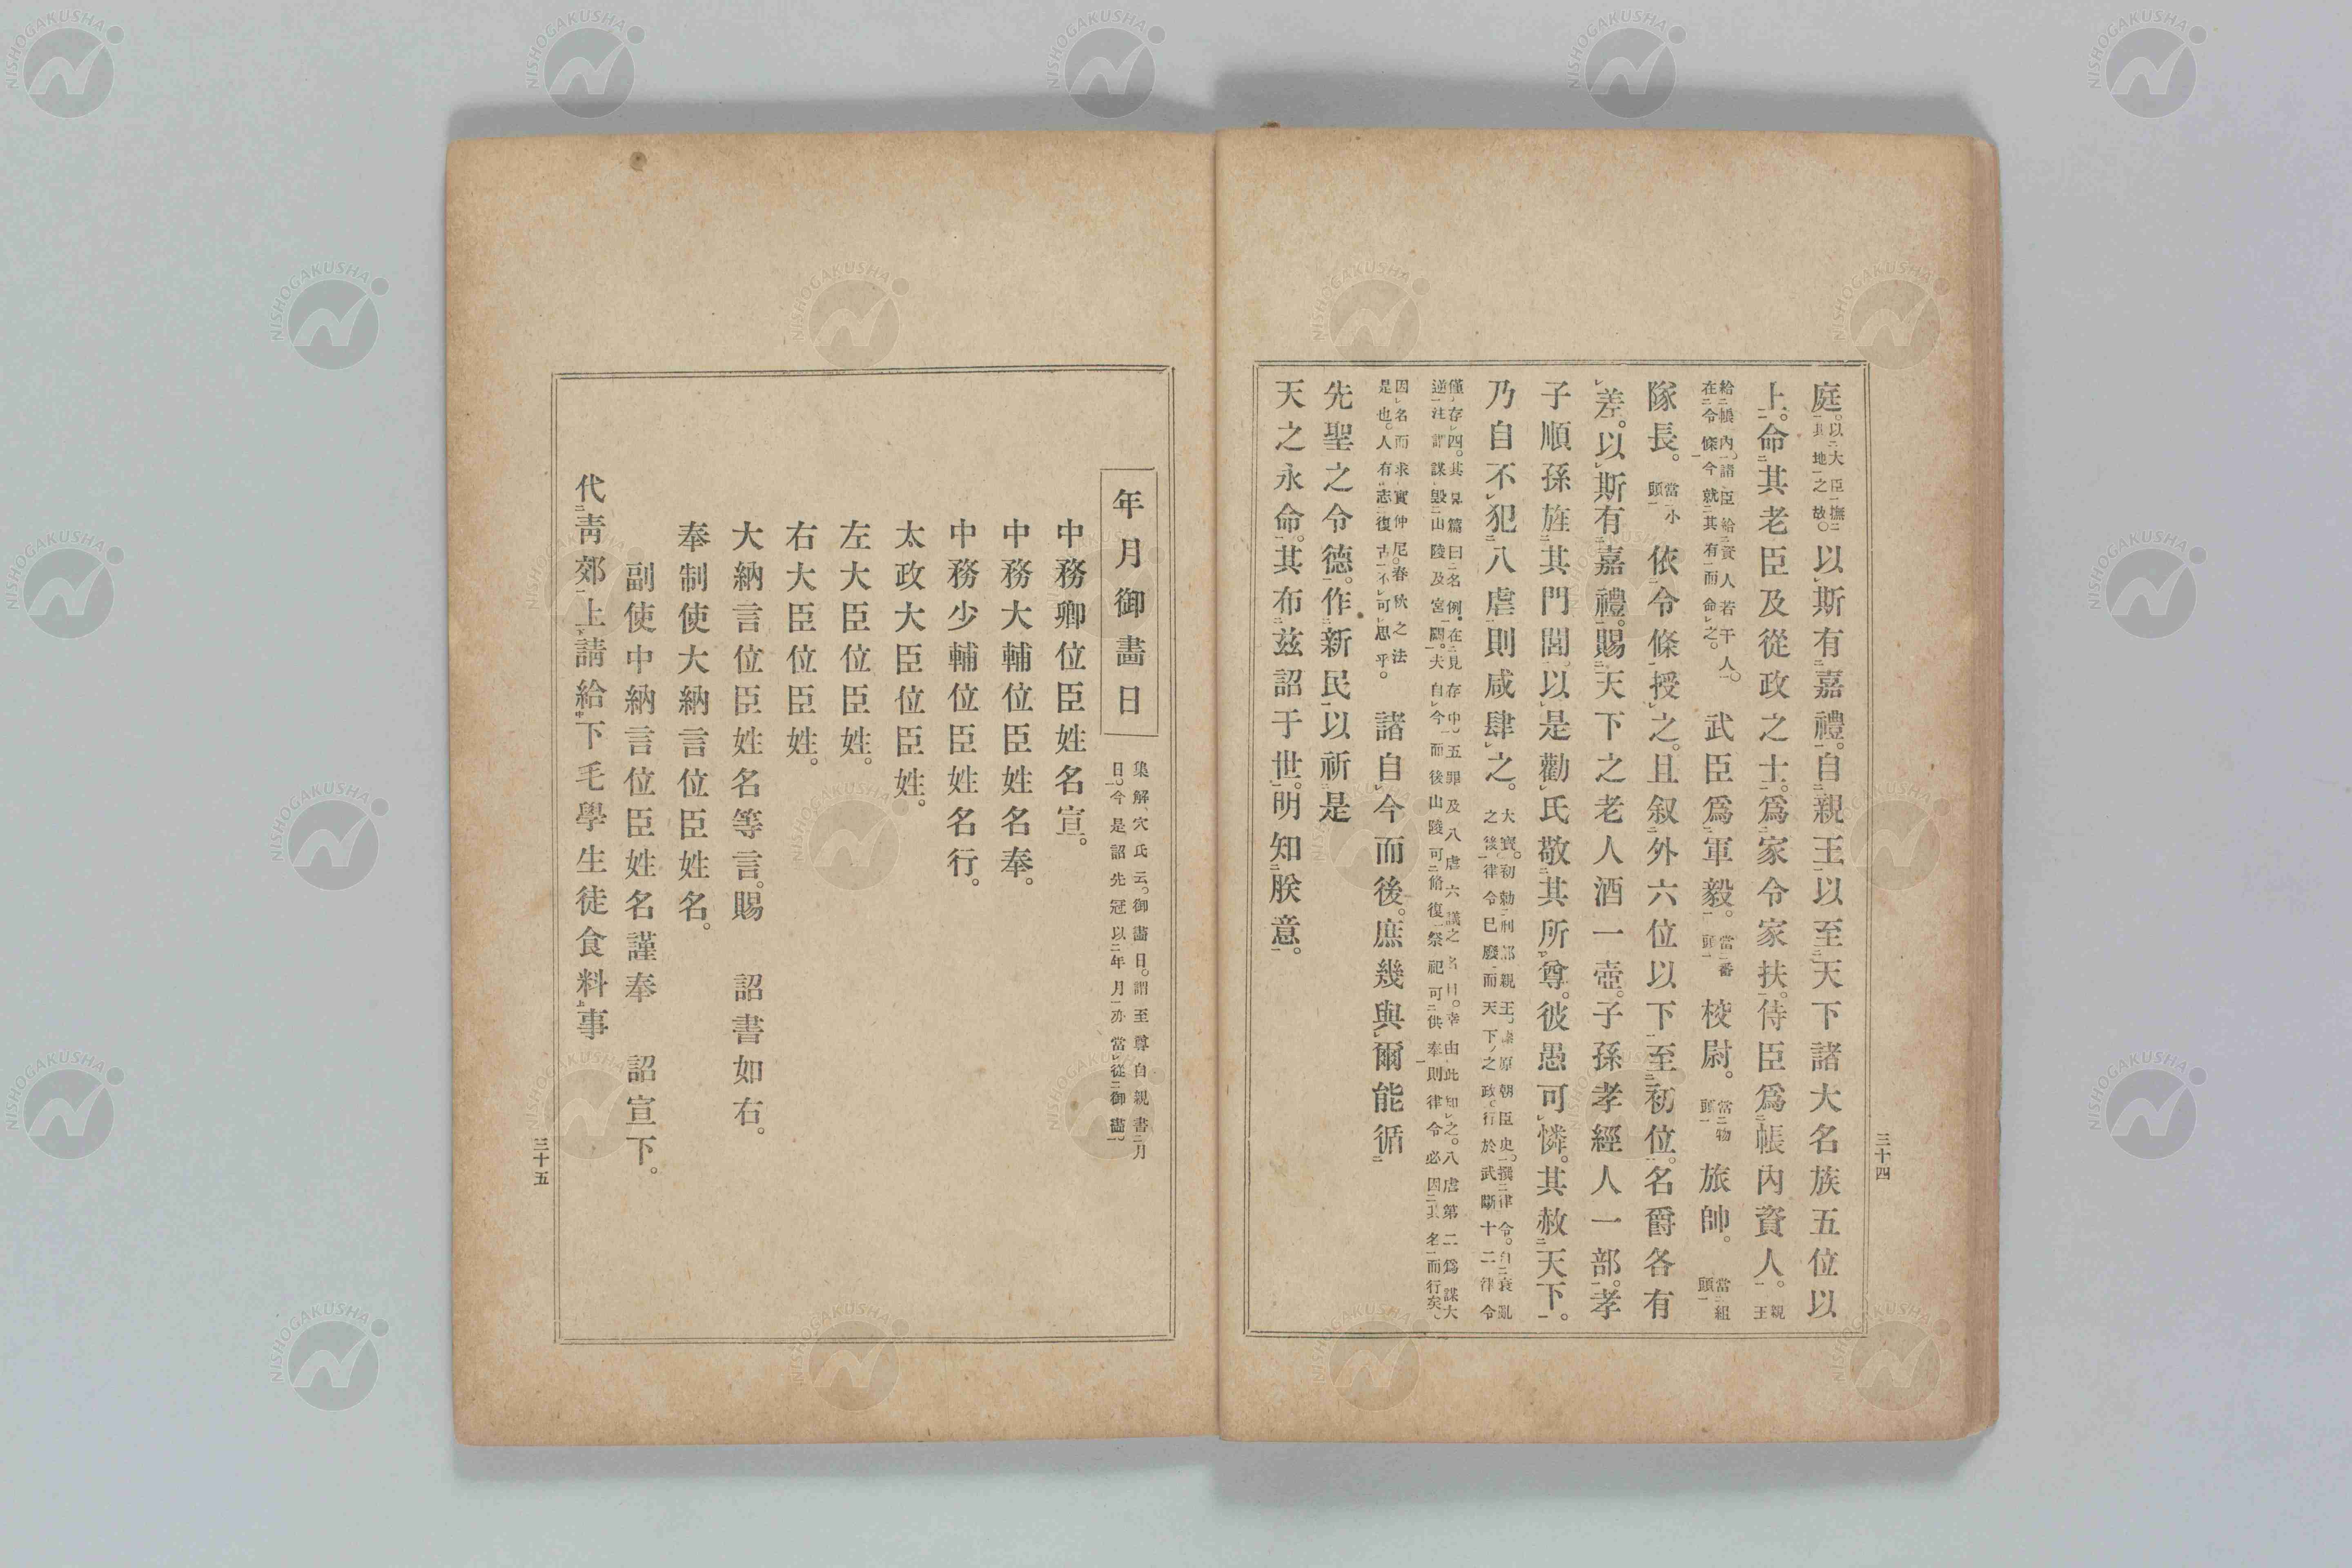 庭。以大臣撫其地之故。以斯有嘉禮。自親王以至天下諸大名族五位以
上。命其老臣及從政之士。爲家令家扶。侍臣爲帳內資人。親王
給帳內。諸臣給資人若干人。在令條今就其有而命之。武臣爲軍毅。當番頭校尉。當物頭旅帥。當組頭
隊長。當小頭依令條授之。且叙外六位以下至初位。名爵各有
差。以斯有嘉禮。賜天下之老人酒一壺。子孫孝經人一部。孝
子順孫旌其門閭。以是勸氏敬其所尊。彼愚可憐。其赦天下。
乃自不犯八虐則咸肆之。大寶。初勅刑部親王。藤原朝臣史。撰律令。自衰亂之後律令已廢而天下之政。行於武斷十二律令
僅存四。其見篇曰名例。在見存中。五罪及八虐六議之名目。幸由此知之。八虐第二爲謀大逆注謂謀毀山陵及宮闕。夫自今而後山陵可脩復祭祀可供奉則律令必因其名而行矣。
因名而求實仲尼。春秋之法是也。人有志復古不可思乎。諸自今而後。庶幾與爾能循
先聖之令德。作新民以祈是
天之永命。其布玆詔于世。明知朕意。
三十四
年月御畫日
集解穴氏云。御畫日。謂至尊自親書月日。今是詔先冠以年月亦當從御畫。
中務卿位臣姓名宣。
中務大輔位臣姓名奉。
中務少輔位臣姓名行。
太政大臣位臣姓。
左大臣位臣姓。
右大臣位臣姓。
大納言位臣姓名等言。賜　詔書如右。
奉制使大納言位臣姓名。
副使中納言位臣姓名謹奉　詔宣下。
代靑郊上請給下毛學生徒食料事
三十五